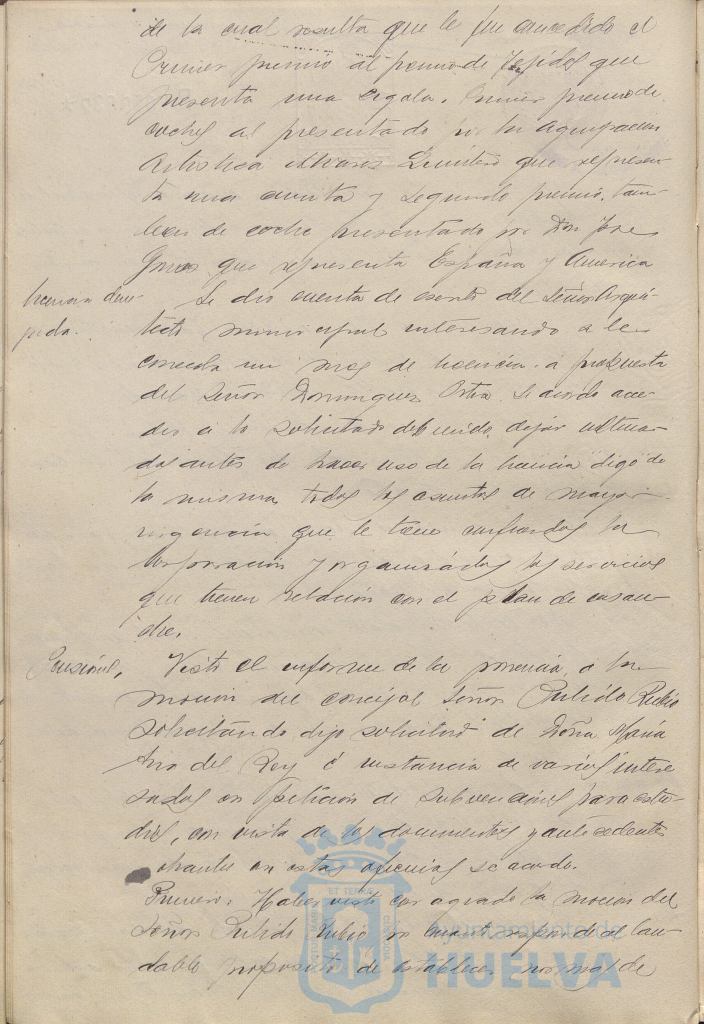 de la cual resulta que le fue concedido el
Primer premio al permio de Tejidos que
presenta una regata. Primer premio de
coches al presentado por la Agrupación
Artística Alvarez Quintero que represen-
ta una carreta y segundo premio, tam-
bien de coche presentado por Don Jose
que representa España y America
Licencia dene-
gada.
Se dio cuenta de escrito del Señor Arqui-
tecto municipal interesando se le
conceda un mes de licencia. a propuesta
del Señor Dominguez Ortiz. Se acordó acce-
der a lo solicitado debiendo, dejar ultima-
dos antes de hacer uso de la licencia digo de
la misma, todos los asuntos de mayor
urgencia que le tiene confiados la
Corporación y organizados los servicios
que tienen relación con el plan de ensan-
che.
Pensiones,
Visto el informe de la ponencia, a la
mocion del concejal Señor Pulido Rubio
solicitando digo solicitud de Doña María
del Rey é instancia de varios intere
sados en petición de subvenciones para estu-
dios, con vista de los documentos y antecedentes
obrantes en estas oficinas se acordo.
Primero. Haber visto con agrado la mocion del
Señor Pulido Rubio en cuanto responde al lau-
dable proposito de establecer normas de
ET TERRAE
CUSTODIA
Ayuntamiento de
HUELVA